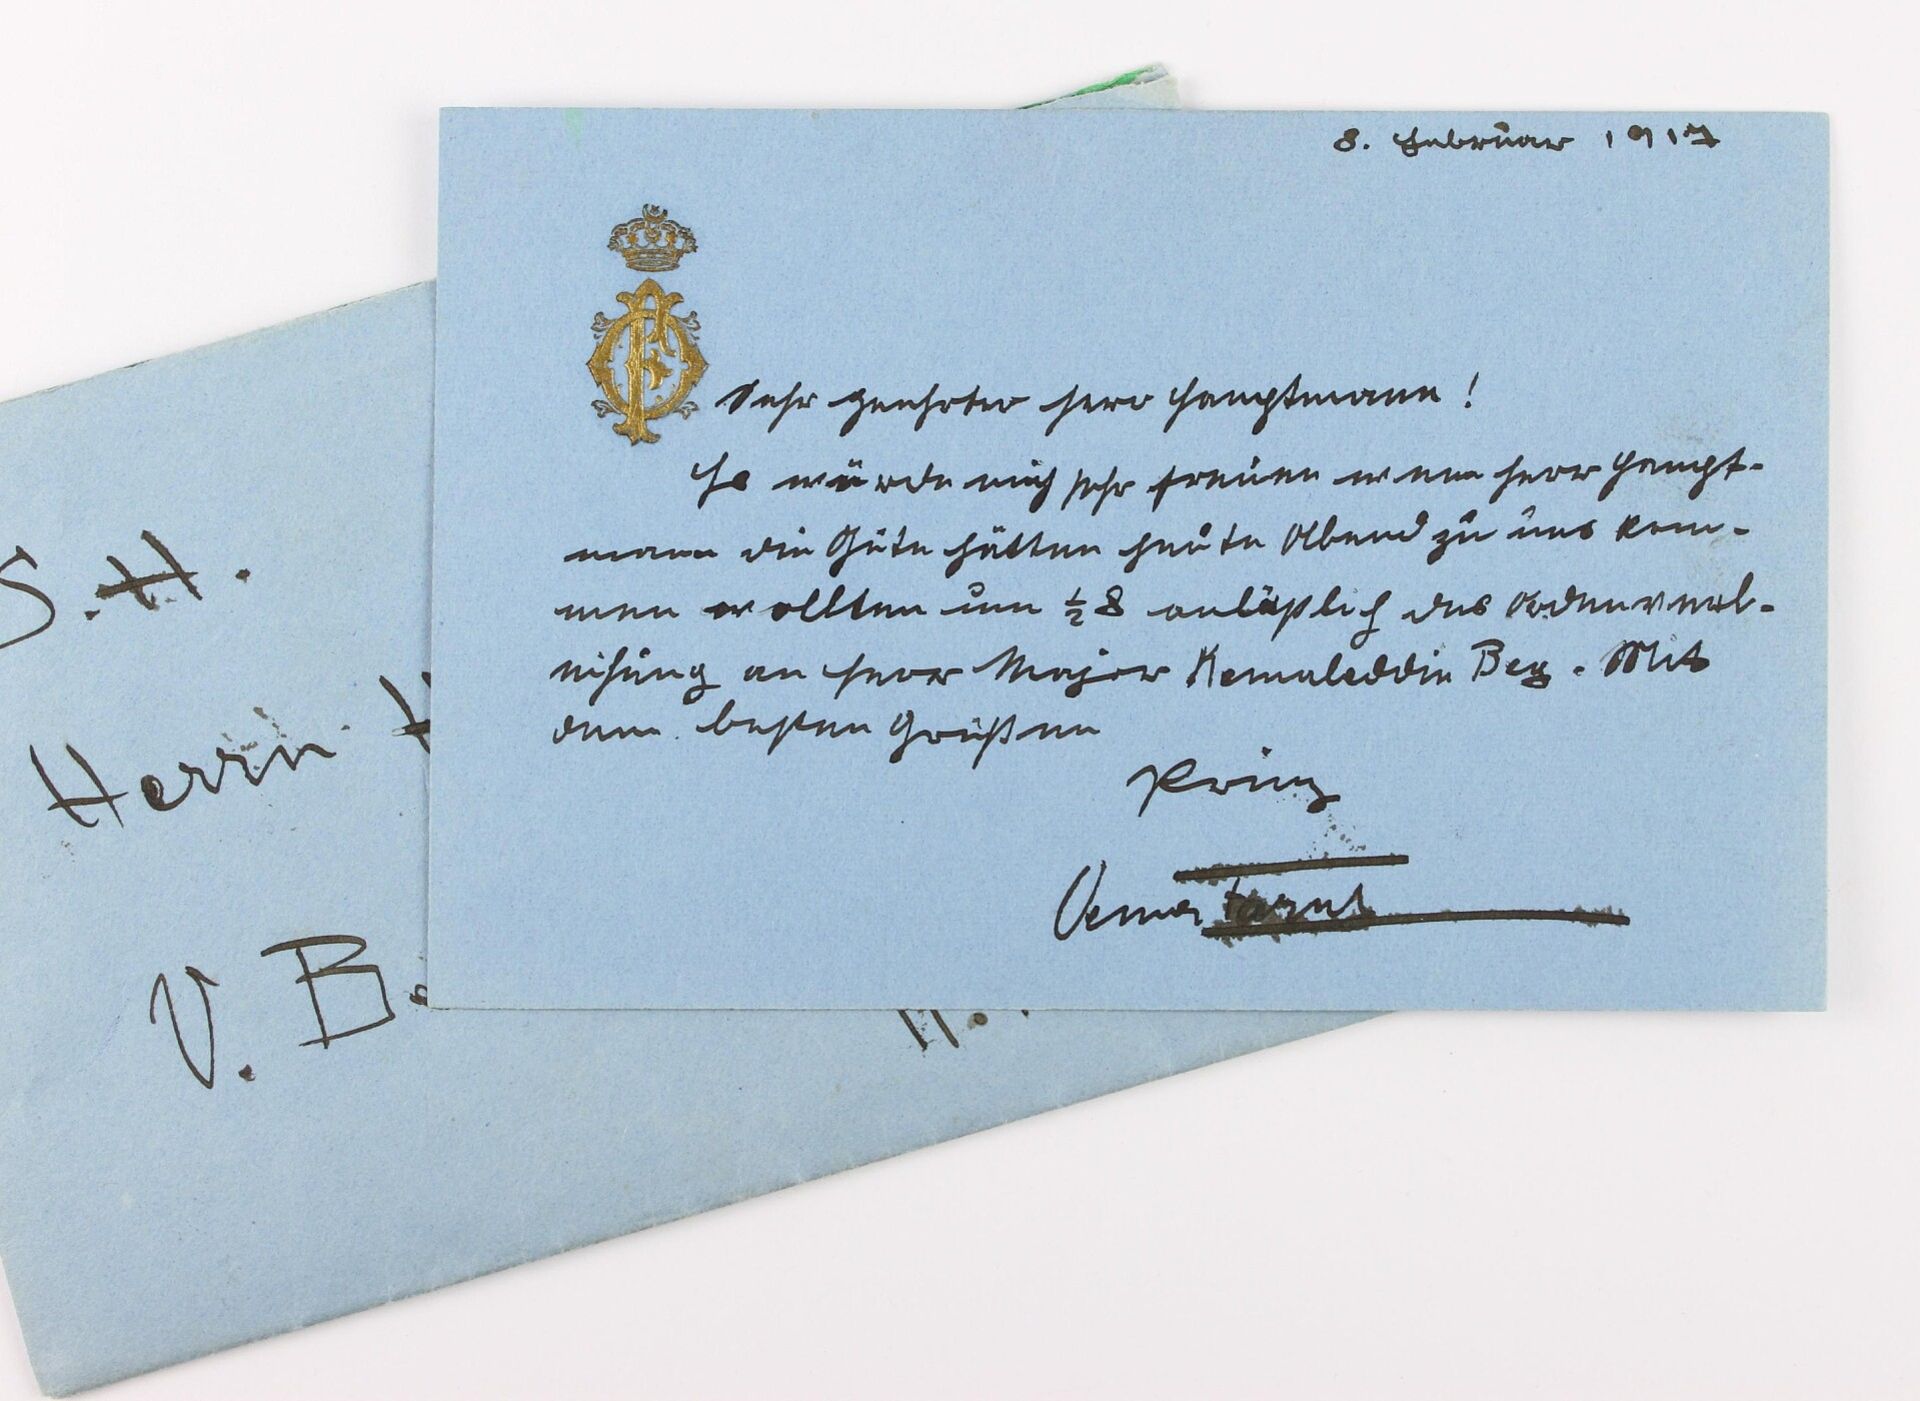 8. Februar 1917
Sehr geehrter Herr Hauptmann!
Es würde mich sehr freuen wenn Herr Haupt-
mann die Güte hätten heute Abend zu uns kom-
men wollten um ½ 8 anläßlich des Ordenverl-
eihung an Herr Major Kemaleddin Bey. Mit
dem besten Grüßen
Prinz
Oemer Faruk
S. H.
Herrn H
V. B